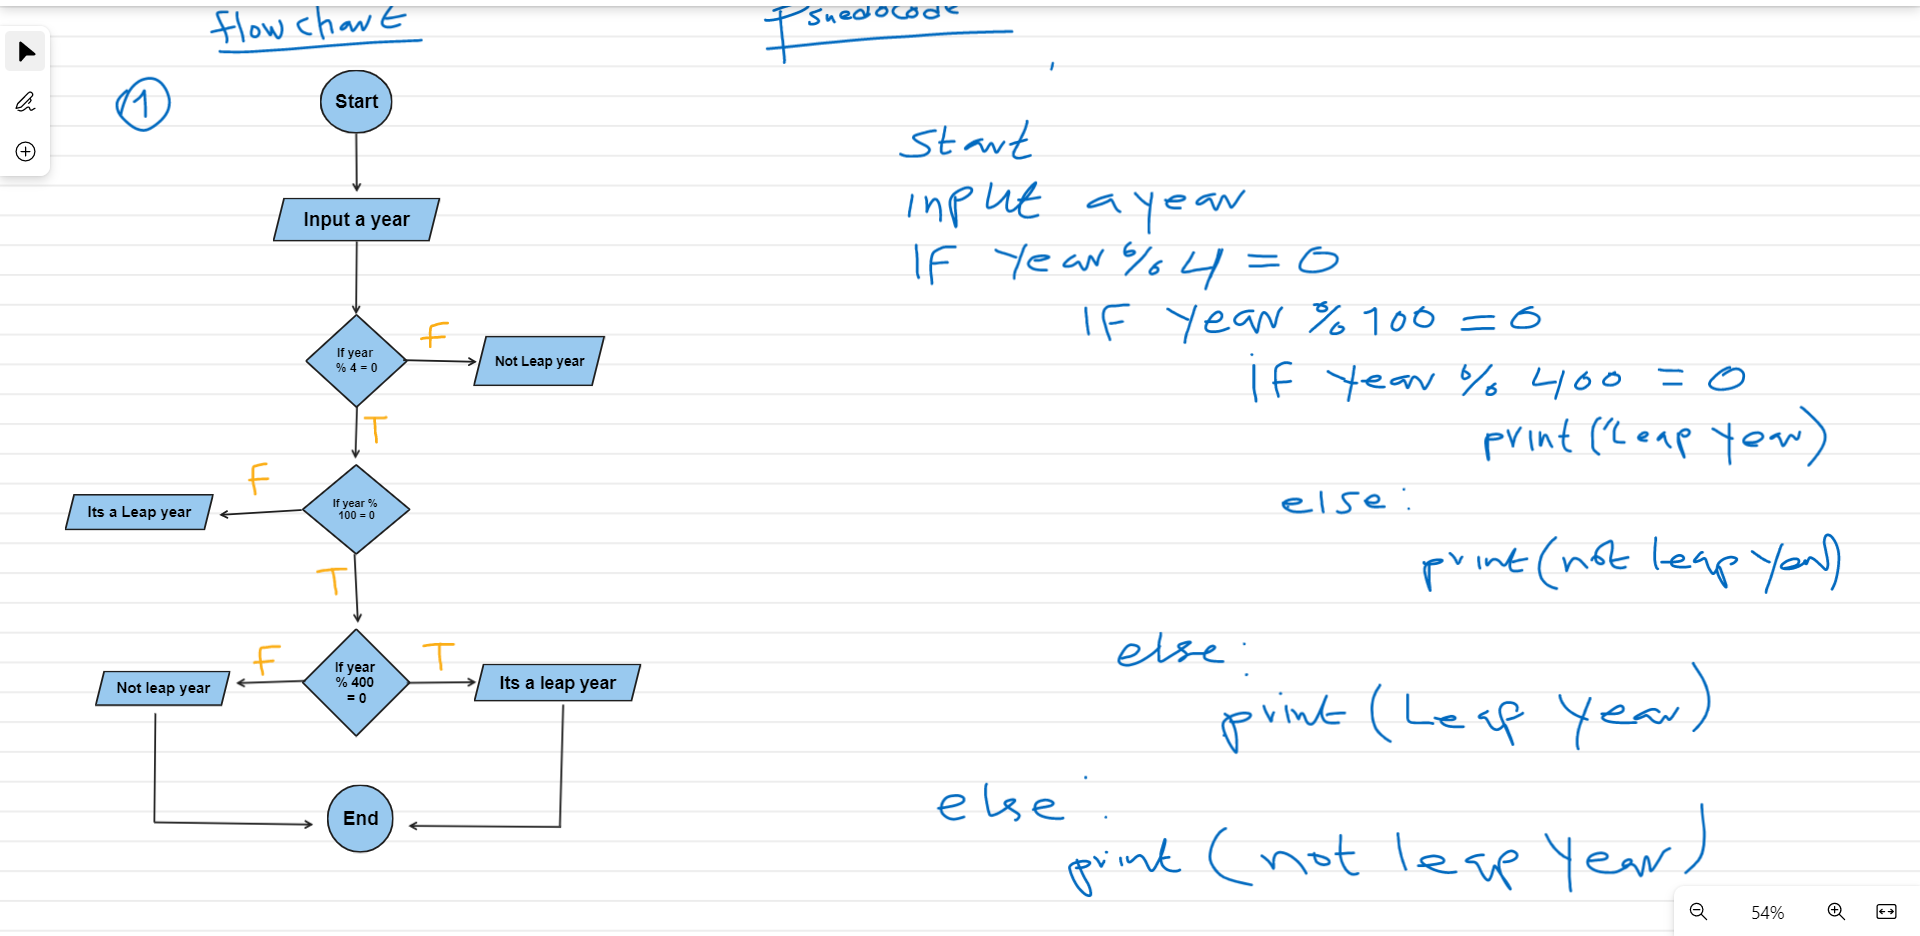 flow chart
Psuedocode
1
Start
Input a year
If year
% 4 = 0
F
Not Leap year
T
If year %
100 = 0
F
Its a Leap year
T
If year
% 400
= 0
F
Not leap year
T
Its a leap year
End
Start
input a year
IF Year % 4 = 0
IF Year % 100 = 0
if Year % 400 = 0
print ("Leap Year)
else:
print (not leap Year)
else:
print (Leap Year)
else:
print (not leap Year)
54%